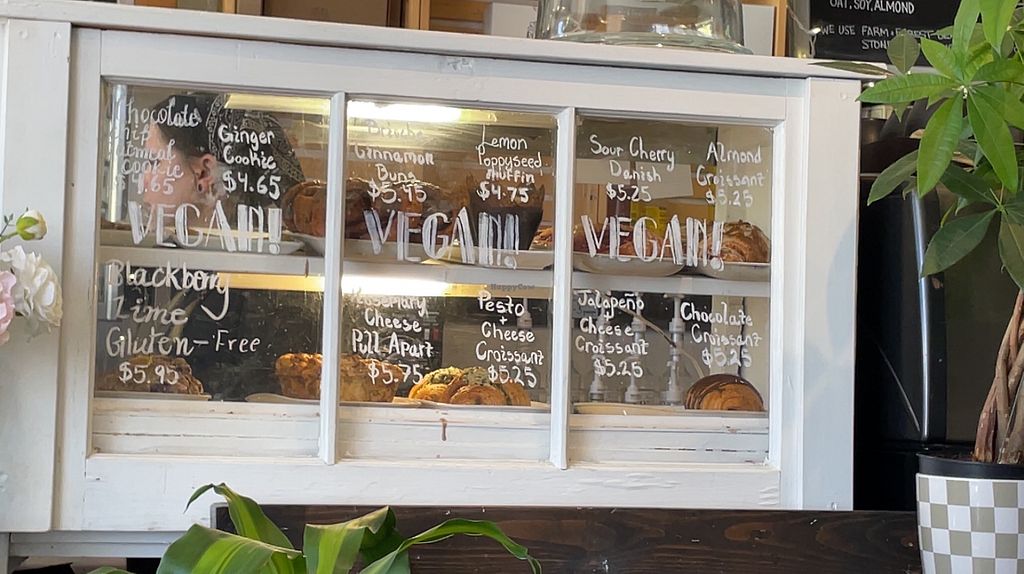 OAT, SOY, ALMOND
WE USE FARM + FOREST
Chocolate
Cookie
$4.65
Ginger
Cookie
$4.65
VEGAN!
Cinnamon
Buns
$5.45
Lemon
Poppyseed
Muffin
$4.75
VEGAN!
Sour Cherry
Danish
$5.25
Almond
Croissant
$5.25
VEGAN!
Blackberry
Lime
Gluten-Free
$5.95
Rosemary
Cheese
Pull Apart
$5.75
Pesto
+
Cheese
Croissant
$5.25
Jalapeño
Cheese
Croissant
$5.25
Chocolate
Croissant
$5.25
HappyCow